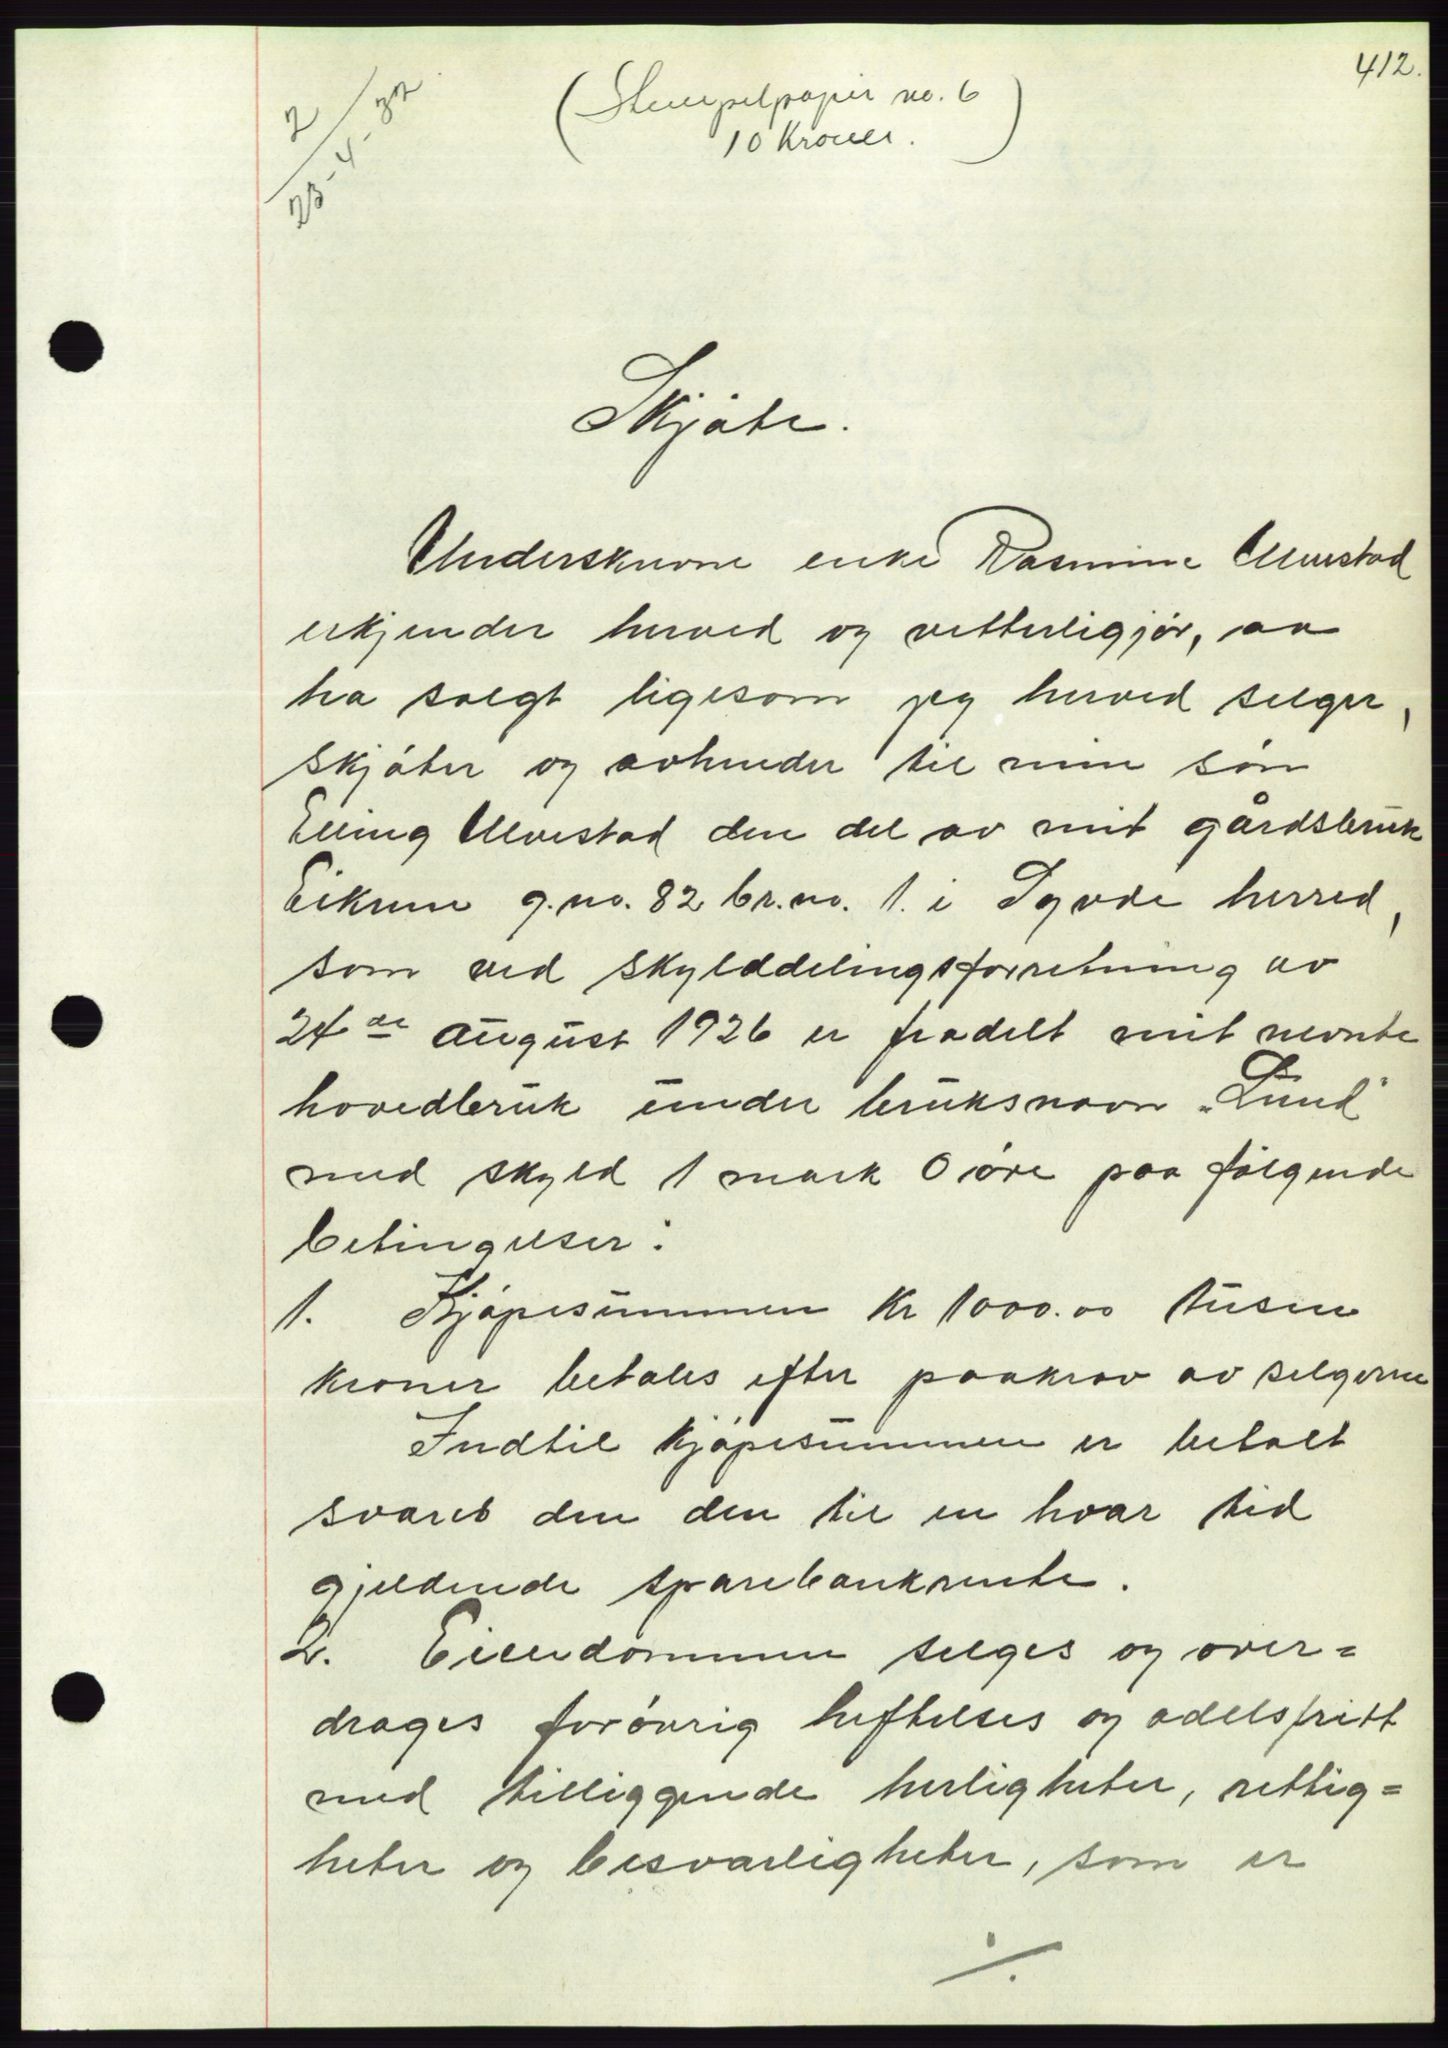 412.
2
23-4-32
(Stempelpapir no. 6
10 Kroner.)
Skjøte.
Underskrevne enke Rasmine Ulvestad
erkjender herved og vitterligjør, aa
ha solgt ligesom jeg herved selger,
skjøter og avhender til min søn
Elling Ulvestad den del av mit gårdsbruk
Eikrem g.no. 82 br.no. 1. i Syvde herred,
som ved skylddelingsforretning av
24de august 1926 er fradelt mit nevnte
hovedbruk under bruksnavn „Lund"
med skyld 1 mark 0 øre paa følgende
betingelser:
1. Kjøpesummen Kr 1000.00 tusen
kroner betales efter paakrav av selgeren
Indtil kjøpesummen er betalt
svares den den til en hver tid
gjeldende sparebankrente.
2. Eiendommen selges og over=
drages forøvrig heftelses og odelsfritt
med tilliggende herligheter, rettig=
heter og besværligheter, som er
./.